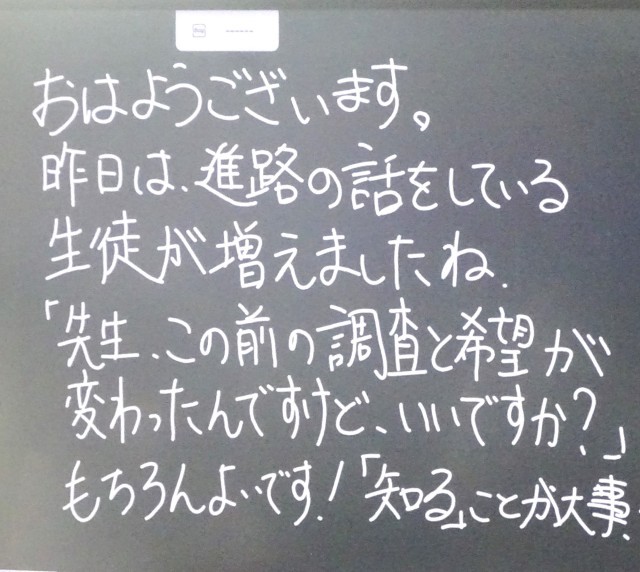 おはようございます。
昨日は、進路の話をしている
生徒が増えましたね.
「先生、この前の調査と希望が
変わったんですけど、いいですか?」
もちろんよいです!「知る」ことが大事.